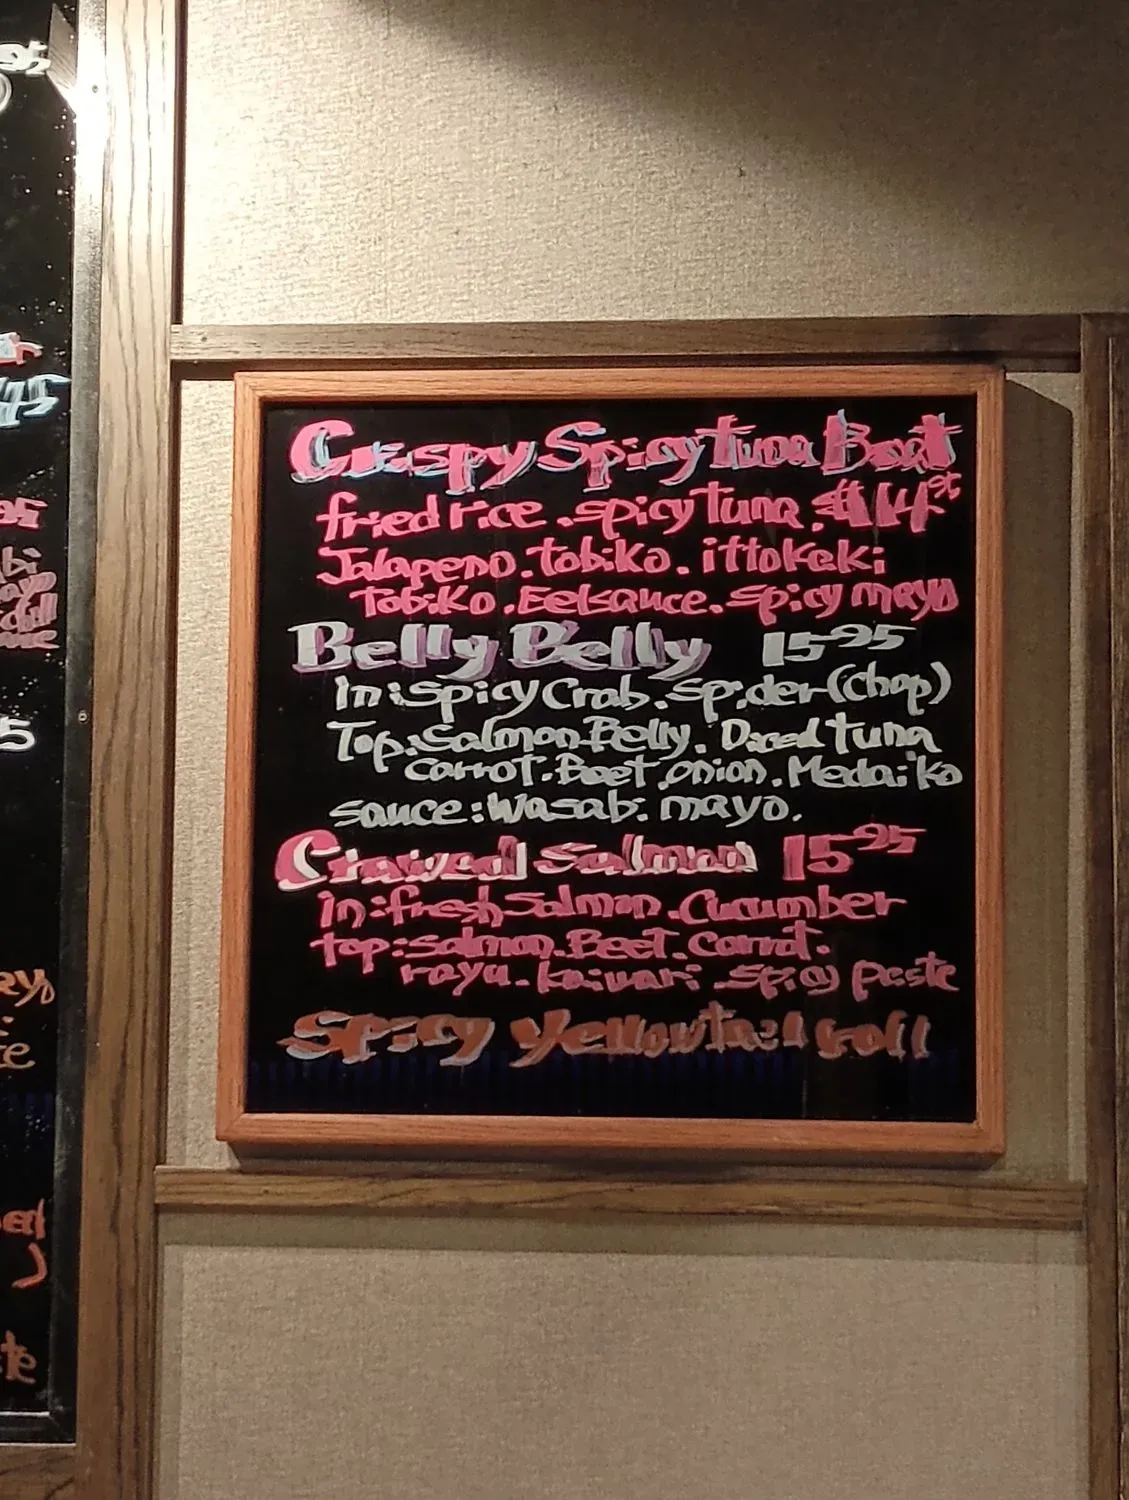 Crispy Spicy tuna Boat
fried rice . spicy tuna . $14
Jalapeno . tobiko . ittokeki
Tobiko . Eelsauce . spicy mayo
Belly Belly 15 95
in : spicy Crab . spider (chop)
Top : Salmon Belly . Diced tuna
carrot . Beet . onion . Medaiko
sauce : Wasabi mayo .
Craived Salmon 15 95
in : fresh Salmon . Cucumber
top : salmon . Beet . Carrot .
rayu . kaiwari . Spicy paste
Spicy yellowtail roll